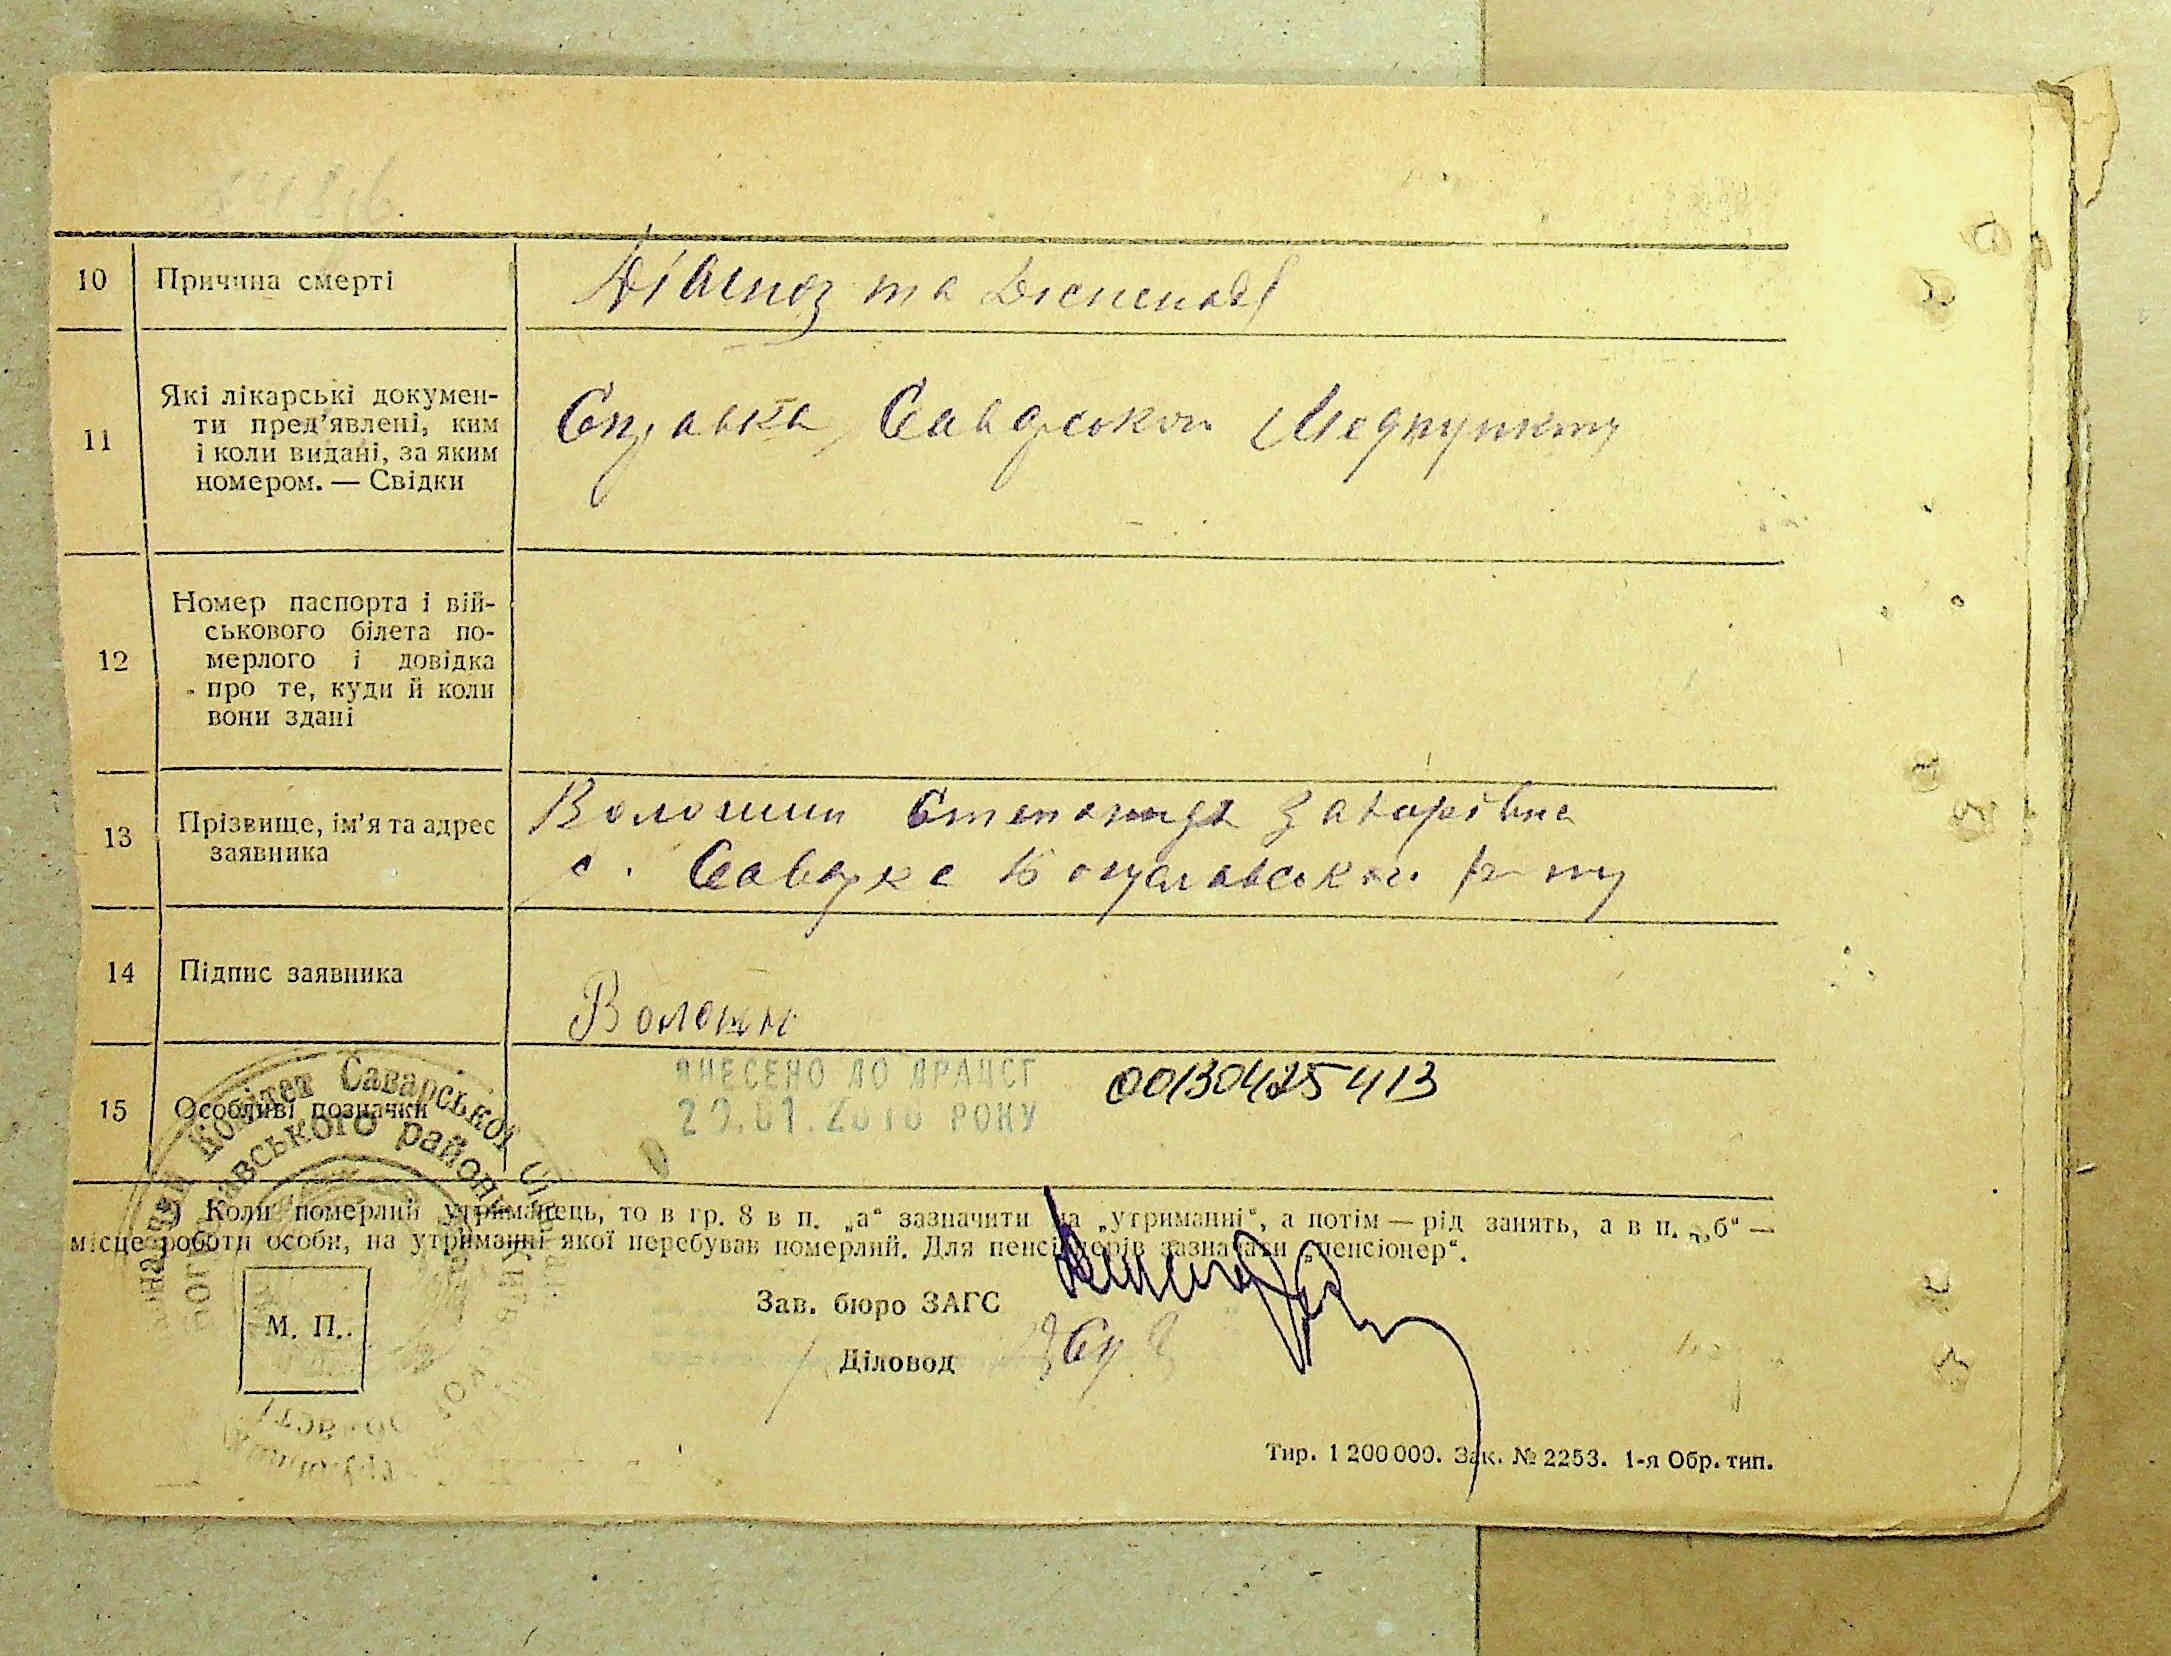 10 Причина смерті Діагноз та
11 Які лікарські докумен-
ти пред’явлені, ким
і коли видані, за яким
номером. — Свідки
Справка Саварського Медпункту
12 Номер паспорта і вій-
ськового білета по-
мерлого і довідка
про те, куди й коли
вони здані
13 Прізвище, ім’я та адрес
заявника
Волошин Степанида Захарівна
с. Саварка Богуславського р-ну
14 Підпис заявника
Волошин
15 Особливі позначки
ВНЕСЕНО ДО ДРАЦСГ 00130425413
01. РОКУ
Комітет Саварської
району
Коли померлий утриманець, то в гр. 8 в п. „а“ зазначити на „утриманні“, а потім — рід занять, а в п. „б“ —
місце роботи особи, на утриманні якої перебував померлий. Для пенсіонерів зазначати „пенсіонер“.
М. П.
Зав. бюро ЗАГС
Діловод
Тир. 1 200 000. Зак. № 2253. 1-я Обр. тип.